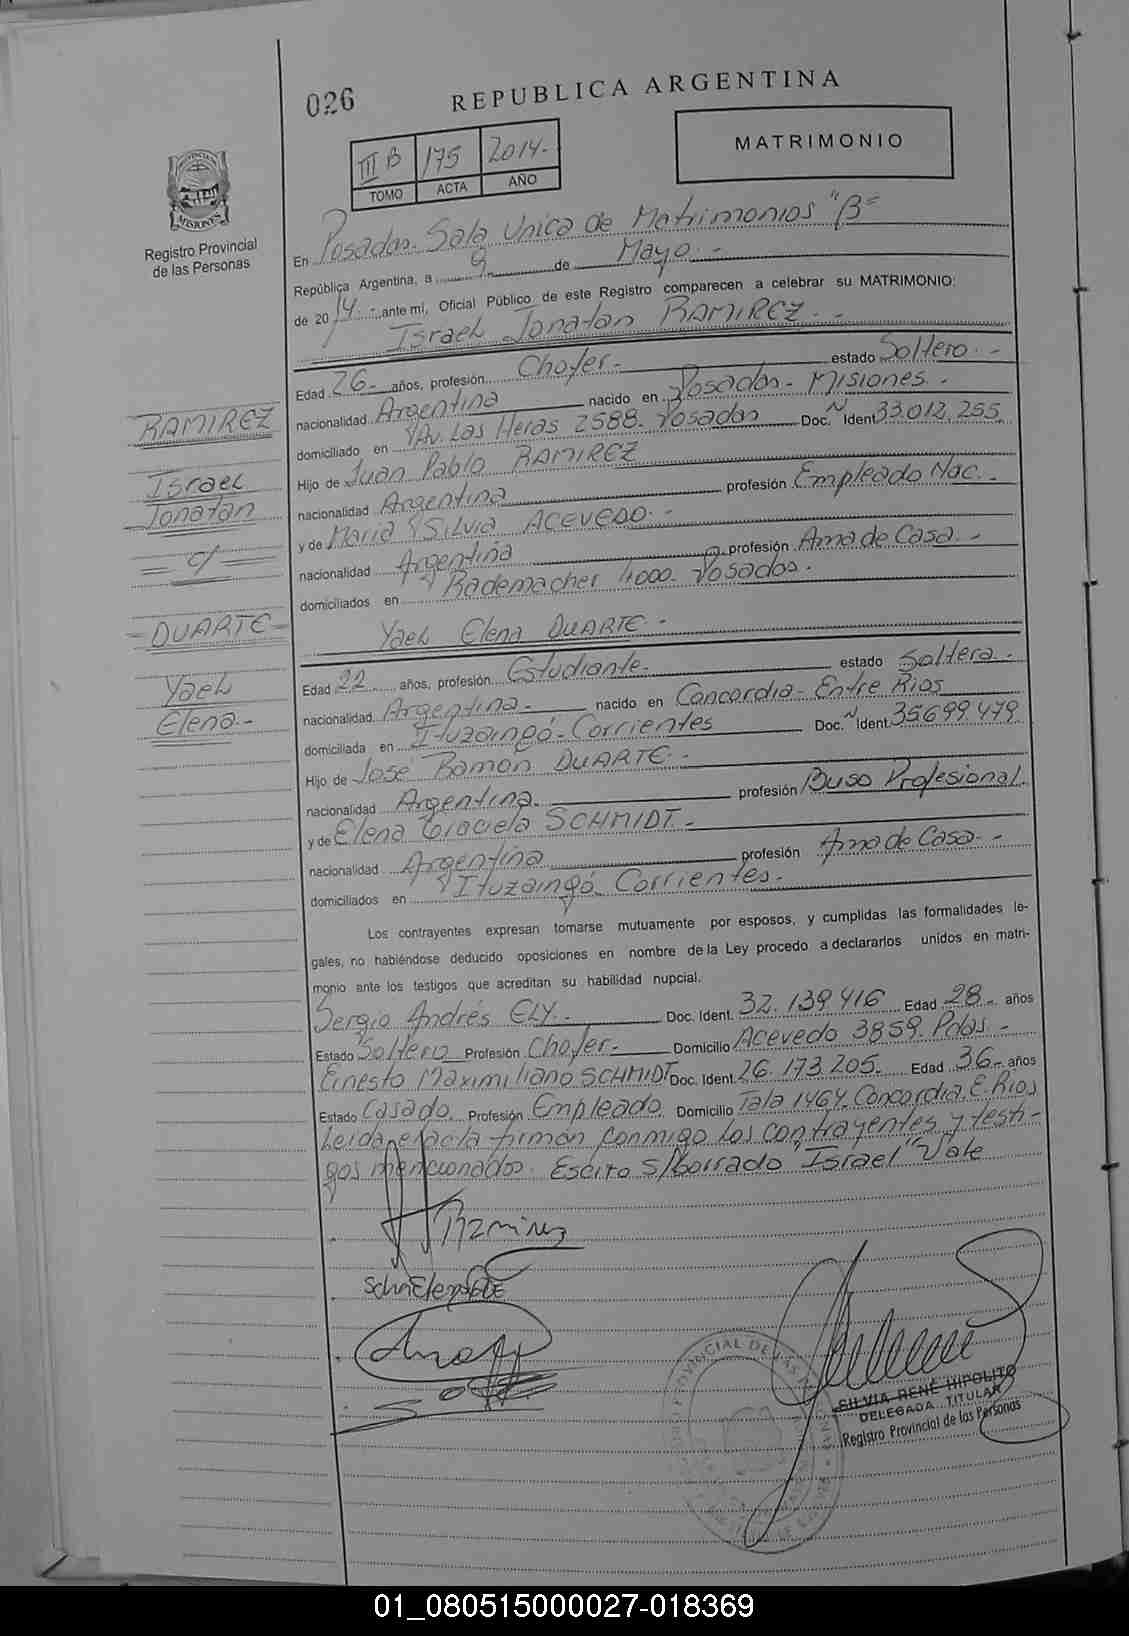 026
REPUBLICA ARGENTINA
III B 175 2014.-
TOMO ACTA AÑO
MATRIMONIO
MISIONES
Registro Provincial
de las Personas
En Posadas. Sala Unica de Matrimonios "B"
República Argentina, a 9 de Mayo.-
de 2014.- ante mí, Oficial Público de este Registro comparecen a celebrar su MATRIMONIO:
Israel Jonatan RAMIREZ.-
Edad 26- años, profesión Chofer- estado Soltero.-
nacionalidad Argentina nacido en Posadas- Misiones.-
domiciliado en Av. Las Heras 2588. Posadas Doc. N Ident 33.012.255.
Hijo de Juan Pablo RAMIREZ
nacionalidad Argentina profesión Empleado Nac.-
y de Maria Silvia ACEVEDO.-
nacionalidad Argentina profesión Ama de Casa.-
domiciliados en Rademacher 4000. Posados.
Yael Elena DUARTE.-
Edad 22 años, profesión Estudiante- estado Soltera.-
nacionalidad Argentina.- nacido en Concordia- Entre Rios
domiciliada en Ituzaingó-Corrientes Doc. N Ident. 35699479
Hijo de Jose Ramon DUARTE.-
nacionalidad Argentina. profesión Buso Profesional.
y de Elena Graciela SCHMIDT.-
nacionalidad Argentina profesión Ama de Casa.-
domiciliados en Ituzaingó Corrientes.-
Los contrayentes expresan tomarse mutuamente por esposos, y cumplidas las formalidades le-
gales, no habiéndose deducido oposiciones en nombre de la Ley procedo a declararlos unidos en matri-
monio ante los testigos que acreditan su habilidad nupcial.
Sergio Andrés ELY.- Doc. Ident. 32.139.416 Edad 28- años
Estado Soltero Profesión Chofer- Domicilio Acevedo 3859. Pdas.-
Ernesto Maximiliano SCHMIDT Doc. Ident. 26.173.205. Edad 36- años
Estado Casado. Profesión Empleado Domicilio Tala 1464. Concordia. E. Rios
Leida el acta firman conmigo los contrayentes y testi-
gos mencionados. Escrito s/borrado "Israel" Vale
RAMIREZ
Israel
Jonatan
= c/ =
-DUARTE-
Yael
Elena.-
Ramirez
SILVIA RENÉ HIPOLITO
DELEGADA TITULAR
Registro Provincial de las Personas
01_080515000027-018369